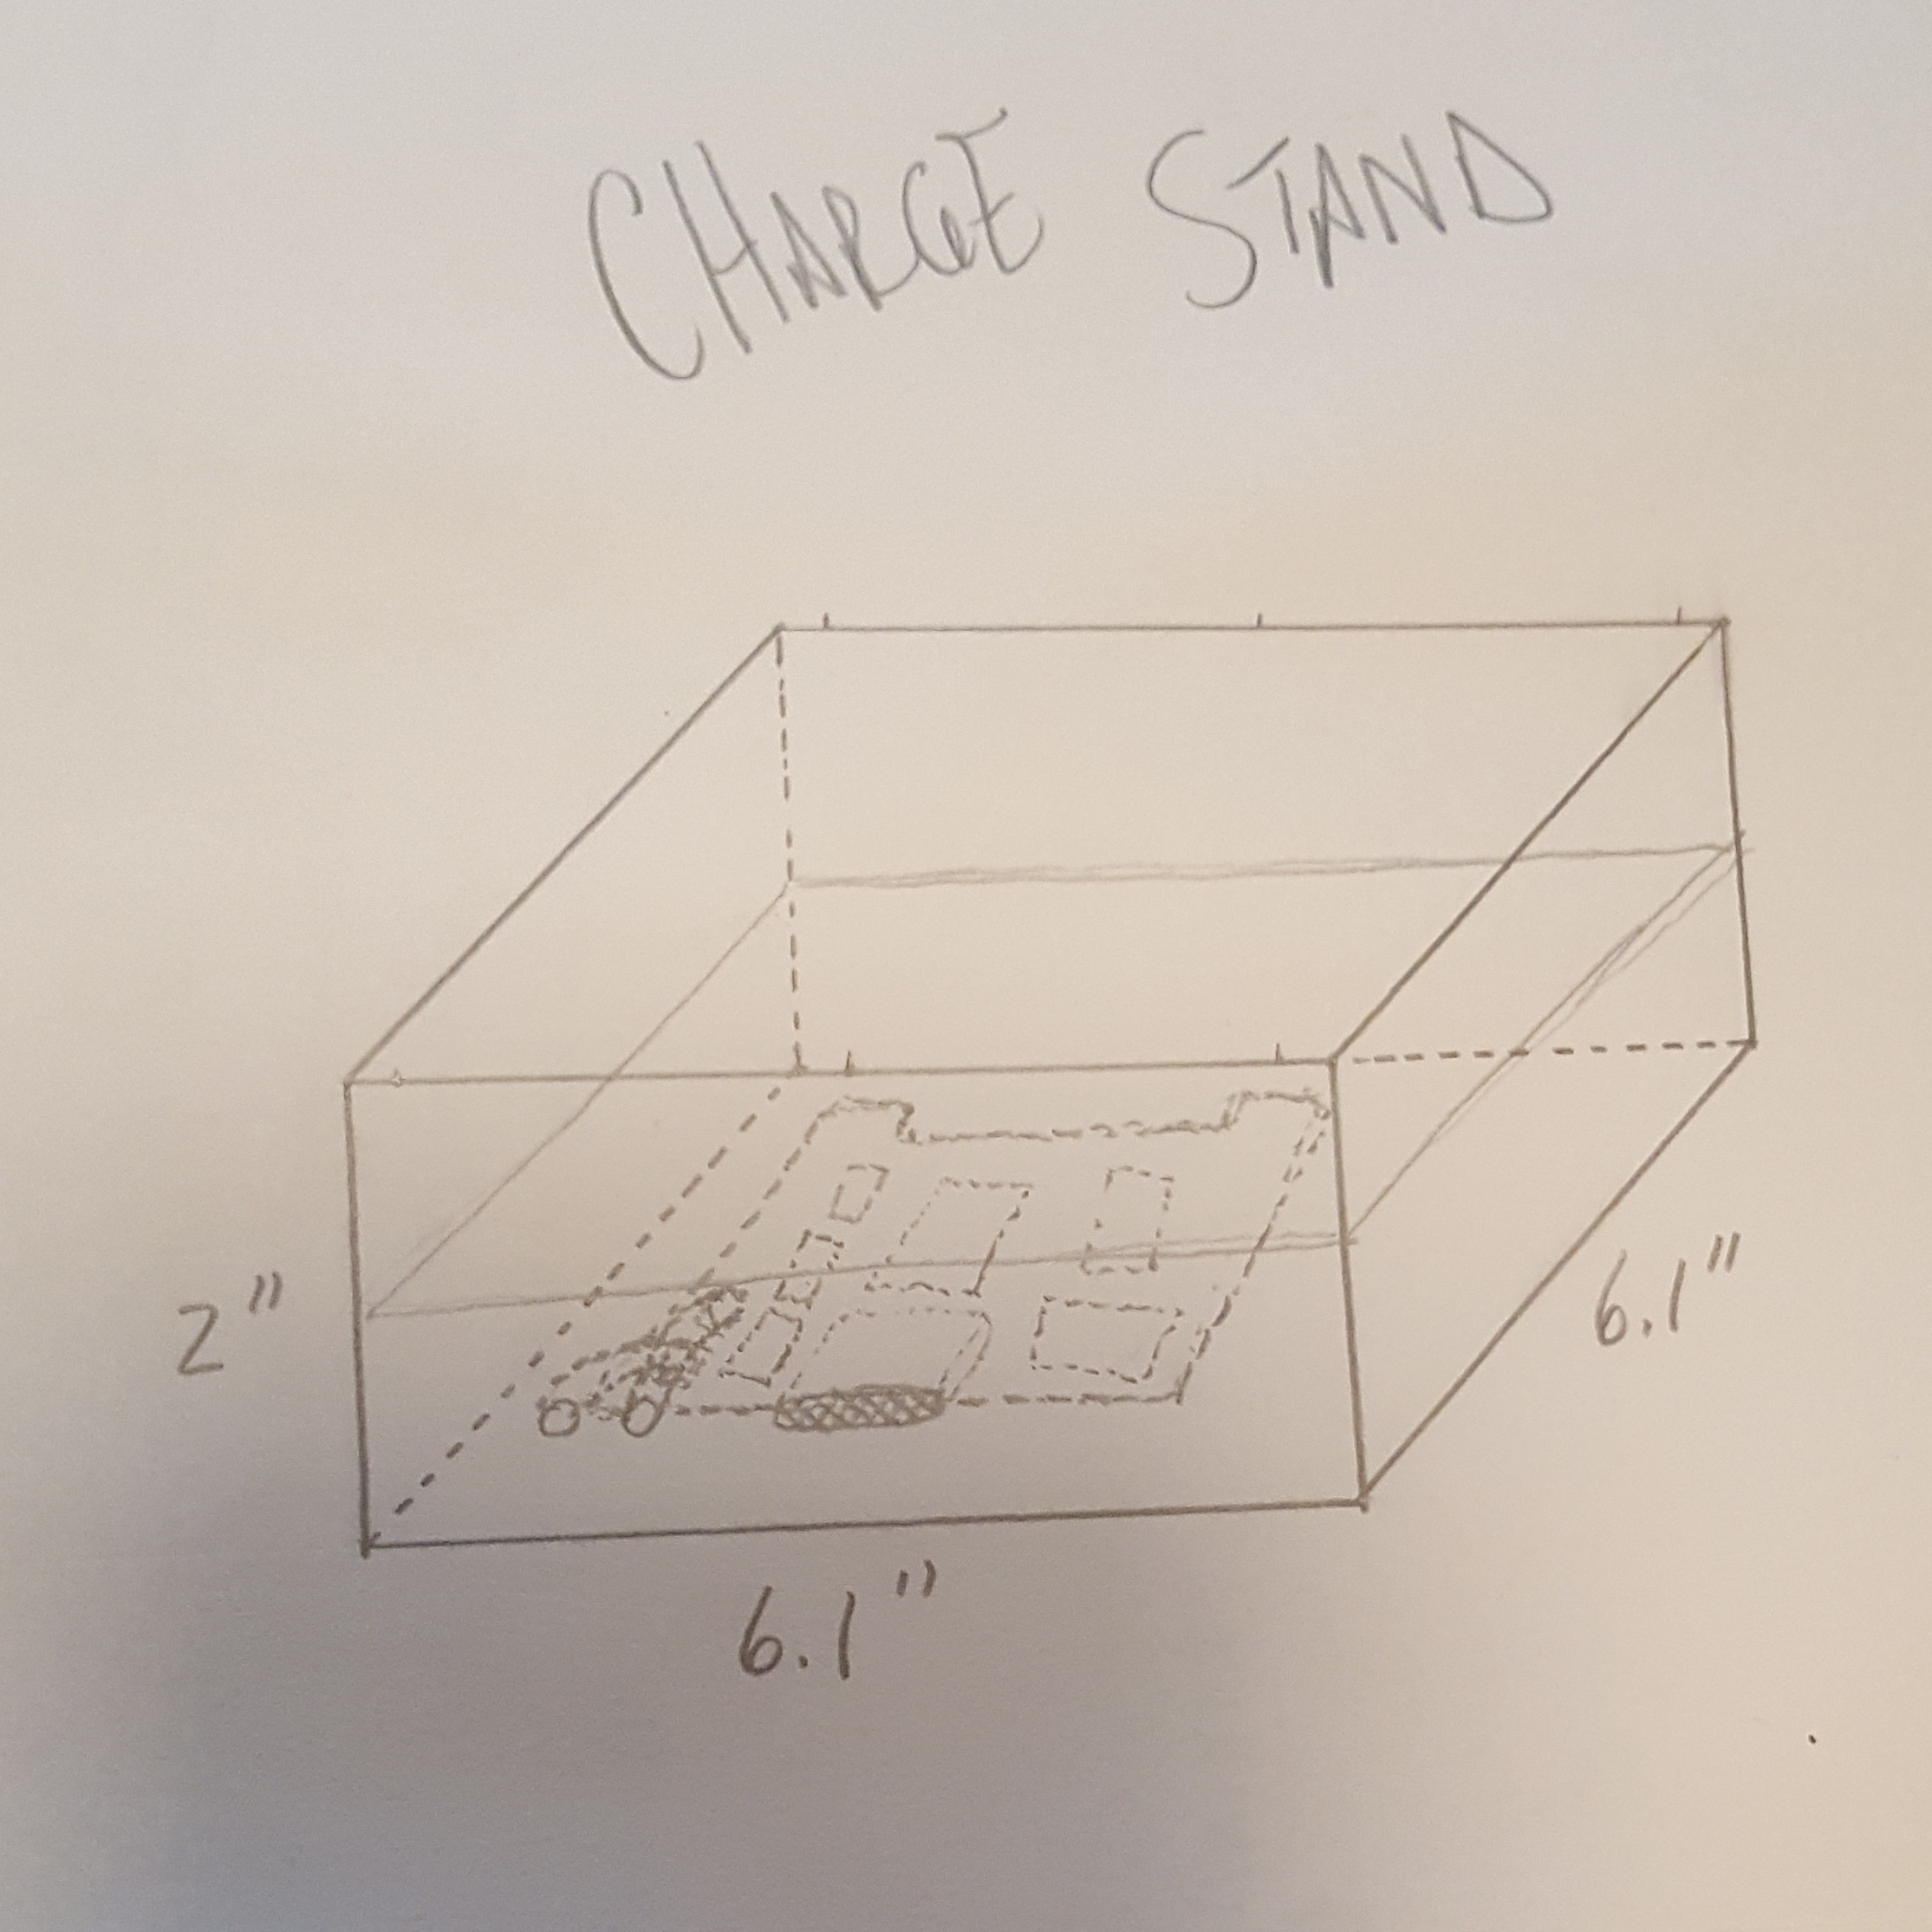 CHARGE STAND
2"
6.1"
6.1"